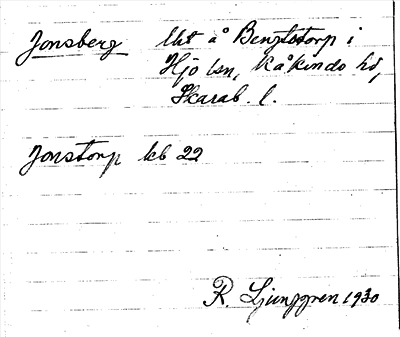 Jonsberg lht å Bengtstorp i
Hjo lsn, Kåkinds hd,
Skarab. l.
Jonstorp kb 22
R. Ljunggren 1930